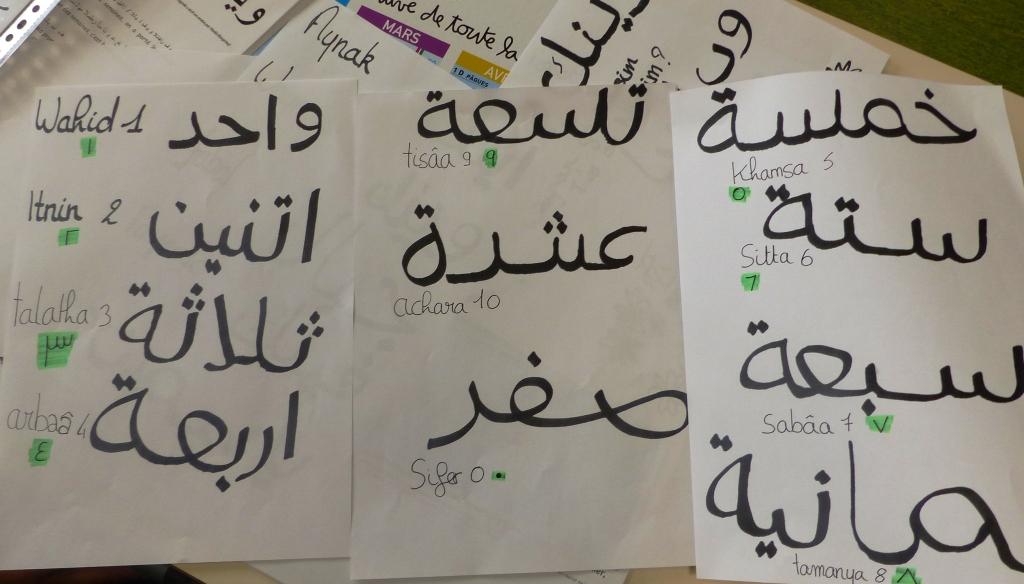 Aynak
MARS
de toute la
1 D PÂQUES
Wahid 1 واحد
١
Itnin 2 اتنين
٢
talatha 3 ثلاثة
٣
arbaâ 4 اربعة
٤
تسعة
tisâa 9 ٩
عشرة
achara 10
صفر
Sifer 0 ٠
خمسة
Khamsa 5
ستة
Sitta 6
سبعة
Sabâa 7 ٧
مانية
tamanya 8 ٨